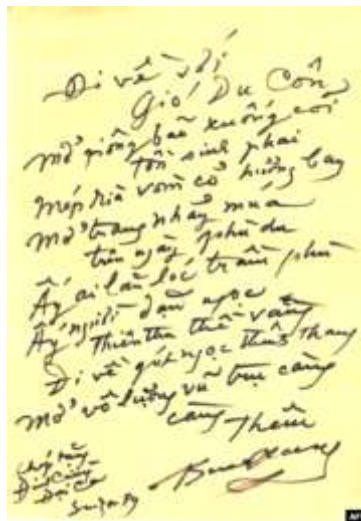 Đi về với
Gió Du Côn
Mở giông bão xuống cõi
tồn sinh phai
Mép rìa vòm cổ hướng bay
Mở trang nhảy múa
trên ngày phù du
Ấy ai lăn lóc trầm phù
Ấy người dẫn ngọc
Thiên thu thế vàng
Đi về gót ngọc thênh thang
Mở vô lượng vũ trụ càng
càng thêm
Chép tặng